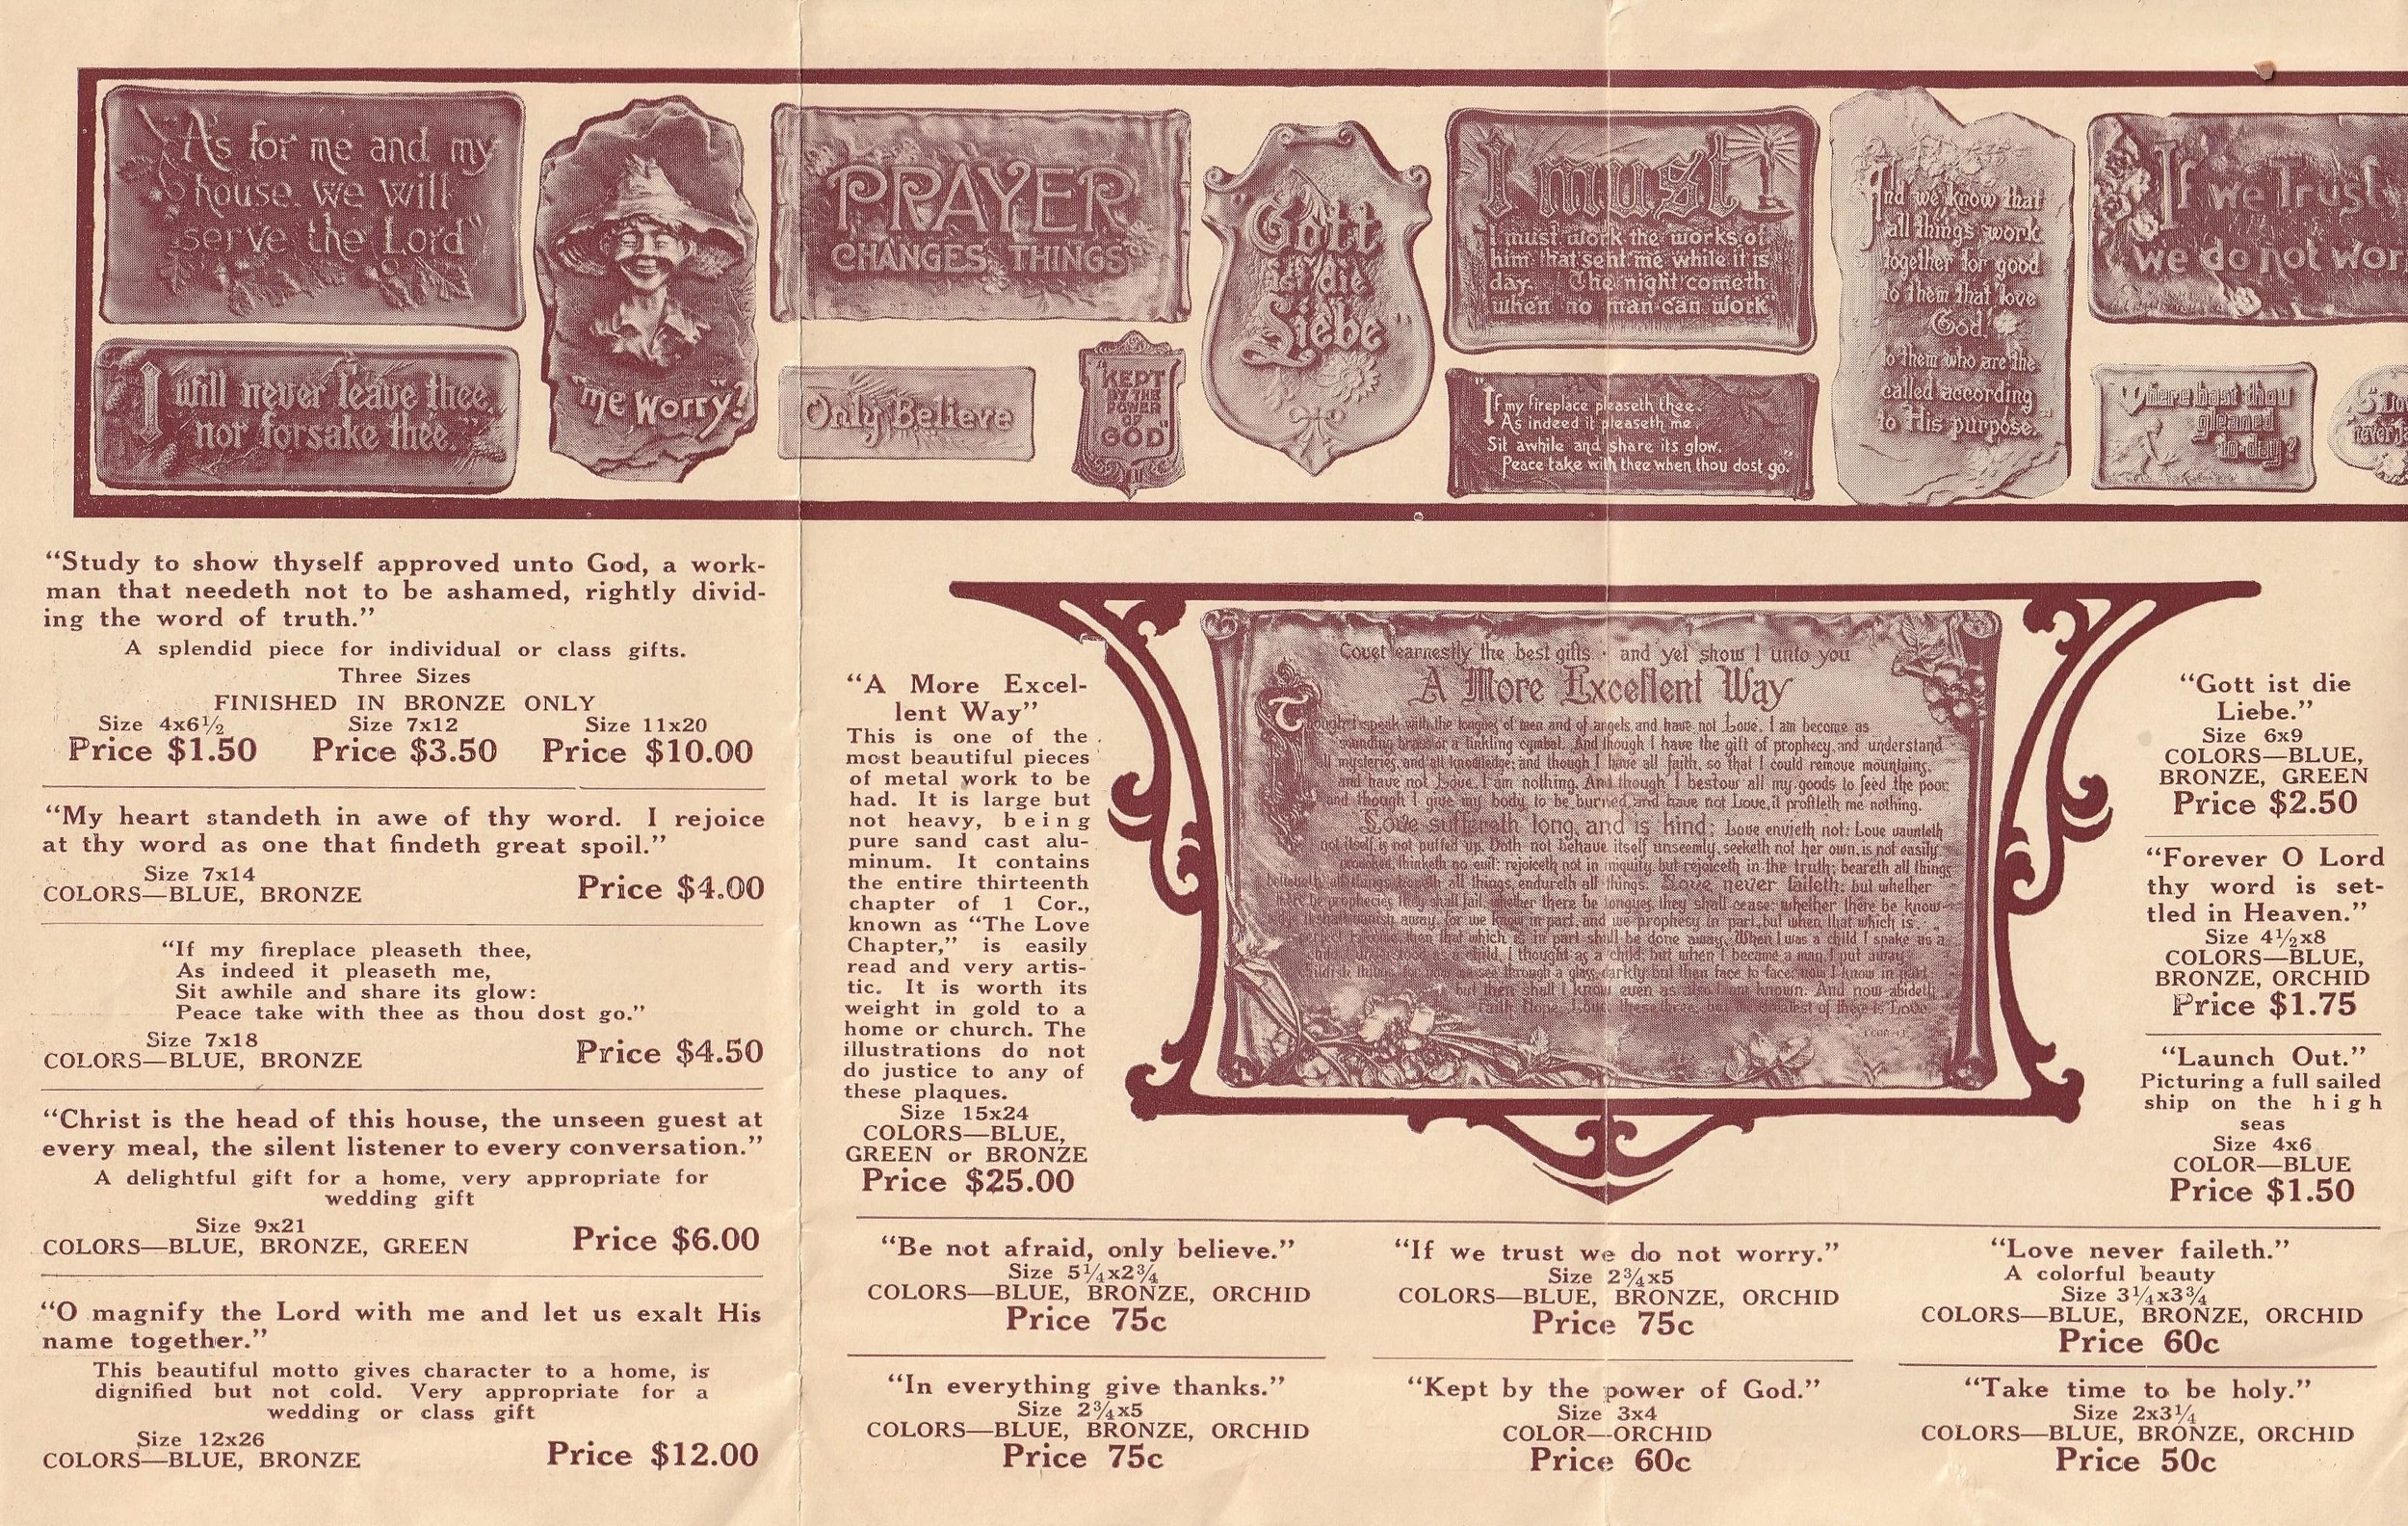 "As for me and my
house. we will
serve the Lord"
"I will never leave thee,
nor forsake thee."
"me worry"?
PRAYER
CHANGES THINGS
Only Believe
"KEPT
BY THE
POWER
OF
GOD"
Gott
ist die
Liebe"
I must
I must work the works of
him that sent me while it is
day. The night cometh
when no man can work"
"If my fireplace pleaseth thee.
As indeed it pleaseth me.
Sit awhile and share its glow.
Peace take with thee when thou dost go."
And we know that
all things work
together for good
to them that love
God.
to them who are the
called according
to His purpose."
If we Trust
we do not wor
Where hast thou
gleaned
to-day?
"Study to show thyself approved unto God, a work-
man that needeth not to be ashamed, rightly divid-
ing the word of truth."
A splendid piece for individual or class gifts.
Three Sizes
FINISHED IN BRONZE ONLY
Size 4x6½ Size 7x12 Size 11x20
Price $1.50 Price $3.50 Price $10.00
"My heart standeth in awe of thy word. I rejoice
at thy word as one that findeth great spoil."
Size 7x14
COLORS—BLUE, BRONZE Price $4.00
"If my fireplace pleaseth thee,
As indeed it pleaseth me,
Sit awhile and share its glow:
Peace take with thee as thou dost go."
Size 7x18
COLORS—BLUE, BRONZE Price $4.50
"Christ is the head of this house, the unseen guest at
every meal, the silent listener to every conversation."
A delightful gift for a home, very appropriate for
wedding gift
Size 9x21
COLORS—BLUE, BRONZE, GREEN Price $6.00
"O magnify the Lord with me and let us exalt His
name together."
This beautiful motto gives character to a home, is
dignified but not cold. Very appropriate for a
wedding or class gift
Size 12x26
COLORS—BLUE, BRONZE Price $12.00
"A More Excel-
lent Way"
This is one of the
most beautiful pieces
of metal work to be
had. It is large but
not heavy, being
pure sand cast alu-
minum. It contains
the entire thirteenth
chapter of 1 Cor.,
known as "The Love
Chapter," is easily
read and very artis-
tic. It is worth its
weight in gold to a
home or church. The
illustrations do not
do justice to any of
these plaques.
Size 15x24
COLORS—BLUE,
GREEN or BRONZE
Price $25.00
Covet earnestly the best gifts · and yet show I unto you
A More Excellent Way
Though I speak with the tongues of men and of angels, and have not Love, I am become as
sounding brass or a tinkling cymbal. And though I have the gift of prophecy, and understand
all mysteries, and all knowledge; and though I have all faith, so that I could remove mountains,
and have not Love, I am nothing. And though I bestow all my goods to feed the poor
and though I give my body to be burned, and have not Love, it profiteth me nothing.
Love suffereth long, and is kind; Love envieth not: Love vaunteth
not itself, is not puffed up, Doth not behave itself unseemly, seeketh not her own, is not easily
provoked, thinketh no evil: rejoiceth not in iniquity, but rejoiceth in the truth; beareth all things
believeth all things, hopeth all things, endureth all things. Love never faileth: but whether
there be prophecies they shall fail, whether there be tongues, they shall cease; whether there be know-
ledge it shall vanish away, for we know in part, and we prophesy in part, but when that which is
perfect is come, then that which is in part shall be done away. When I was a child I spake as a
child, I understood as a child, I thought as a child; but when I became a man, I put away
childish things. for now we see through a glass, darkly; but then face to face: now I know in part;
but then shall I know even as also I am known. And now abideth
Faith, Hope, Love, these three, but the greatest of these is Love.
"Gott ist die
Liebe."
Size 6x9
COLORS—BLUE,
BRONZE, GREEN
Price $2.50
"Forever O Lord
thy word is set-
tled in Heaven."
Size 4½x8
COLORS—BLUE,
BRONZE, ORCHID
Price $1.75
"Launch Out."
Picturing a full sailed
ship on the high
seas
Size 4x6
COLOR—BLUE
Price $1.50
"Be not afraid, only believe."
Size 5¼x2¾
COLORS—BLUE, BRONZE, ORCHID
Price 75c
"If we trust we do not worry."
Size 2¾x5
COLORS—BLUE, BRONZE, ORCHID
Price 75c
"Love never faileth."
A colorful beauty
Size 3¼x3¾
COLORS—BLUE, BRONZE, ORCHID
Price 60c
"In everything give thanks."
Size 2¾x5
COLORS—BLUE, BRONZE, ORCHID
Price 75c
"Kept by the power of God."
Size 3x4
COLOR—ORCHID
Price 60c
"Take time to be holy."
Size 2x3¼
COLORS—BLUE, BRONZE, ORCHID
Price 50c